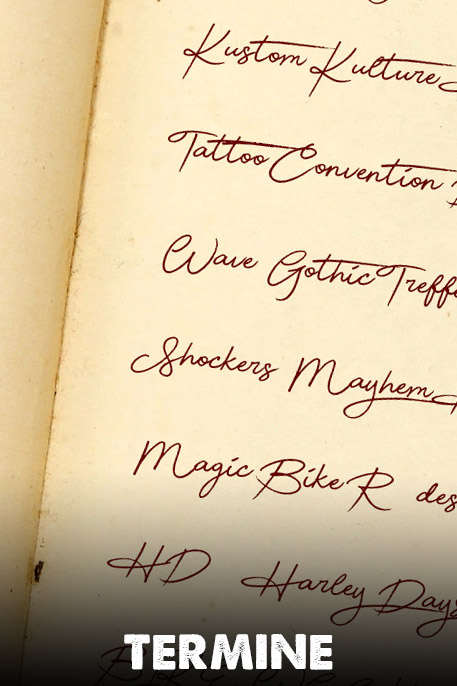 Kustom Kulture
Tattoo Convention
Wave Gothic
Shockers Mayhem
Magic Bike R
HD Harley Days
TERMINE